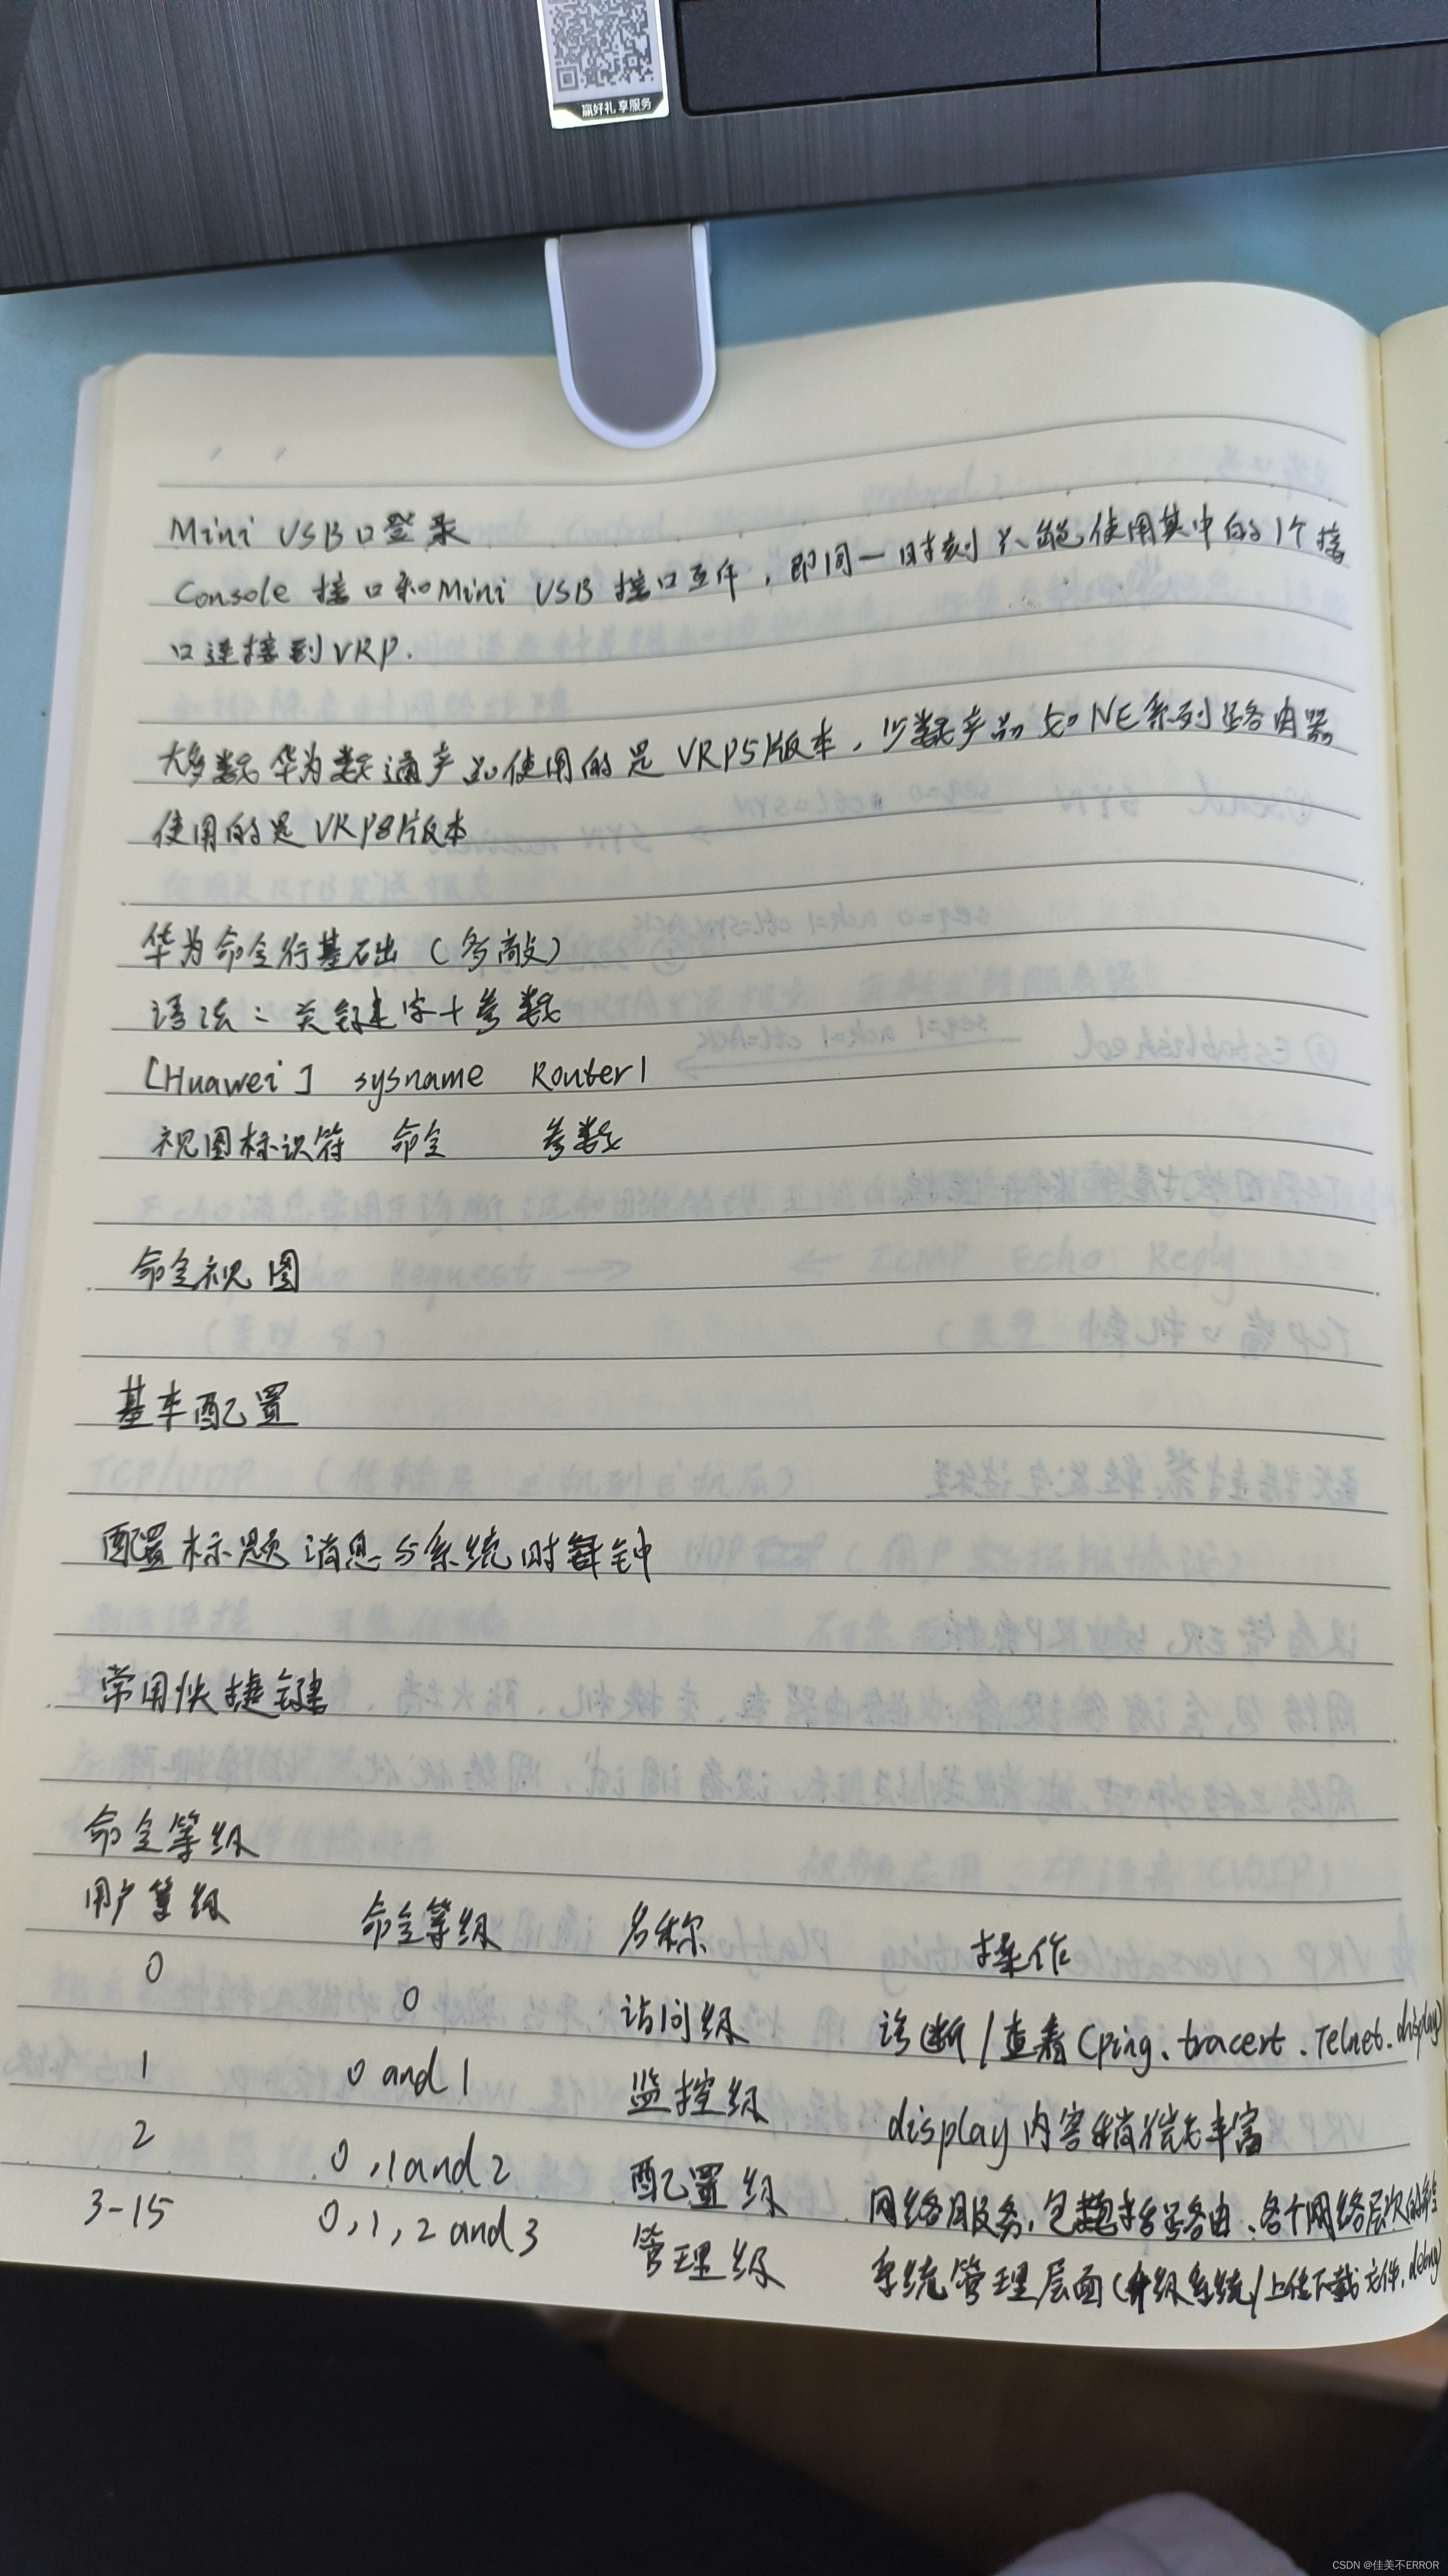 赢好礼 享服务
Mini USB口登录
Console 接口和Mini USB 接口互斥，即同一时刻只能使用其中的1个接
口连接到VRP.
大多数华为数通产品使用的是VRP5版本，少数产品如NE系列路由器
使用的是VRP8版本
华为命令行基础（多敲）
语法：关键字+参数
[Huawei] sysname Router1
视图标识符 命令 参数
命令视图
基本配置
配置标题消息与系统时钟
常用快捷键
命令等级
用户等级 命令等级 名称 操作
0 0 访问级 诊断/查看(ping、tracert、Telnet、display)
1 0 and 1 监控级 display内容稍微丰富
2 0,1and2 配置级 网络服务,包括路由、各个网络层次的
3-15 0,1,2and3 管理级 系统管理层面(升级系统/上传下载文件,debug)
CSDN @佳美不ERROR